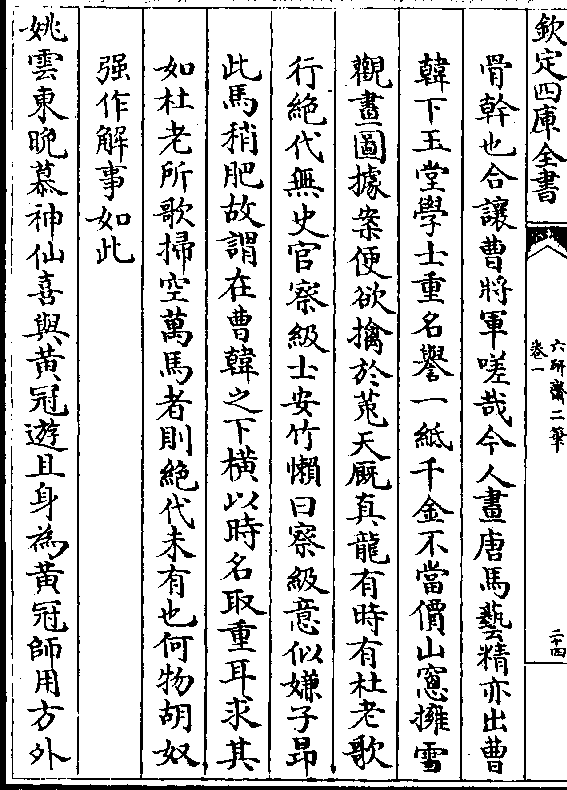 欽定四庫全書
六研齋二筆
卷一
二十四
骨幹也合讓曹將軍嗟哉今人畫唐馬藝精亦出曹
韓下玉堂學士重名譽一紙千金不當價山窻擁雪
觀畫圖據案便欲擒於菟天厩真龍有時有杜老歌
行絶代無史官察級士安竹懶曰察級意似嫌子昂
此馬稍肥故謂在曹韓之下横以時名取重耳求其
如杜老所歌掃空萬馬者則絶代未有也何物胡奴
强作解事如此
姚雲東晚慕神仙喜與黄冠遊且身為黄冠師用方外